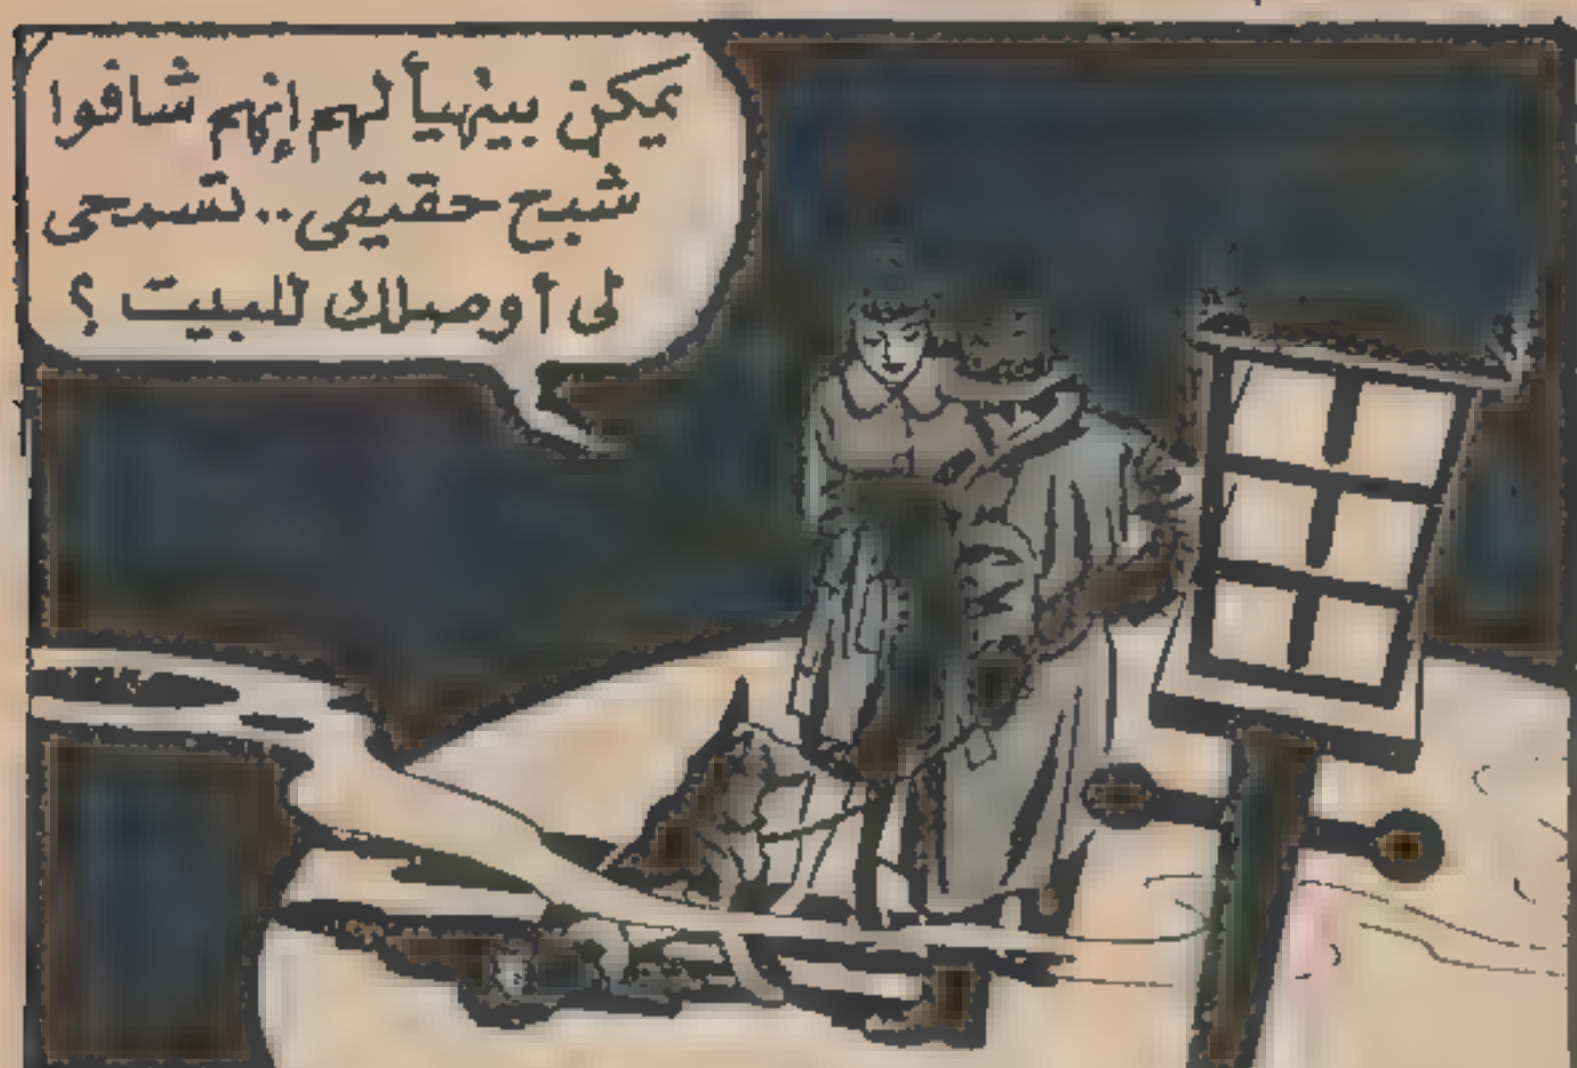 يمكن بيتهيأ لهم إنهم شافوا
شبح حقيقى.. تسمحى
لى أوصلك للبيت ؟